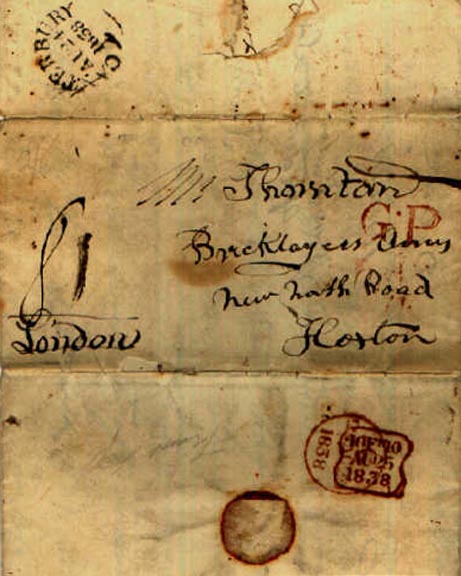 TERBURY
AU 24
1838
Mr Thorntan
G.P
Bricklayers Arms
New North Road
Hoxton
London
1838
AU 25
1838